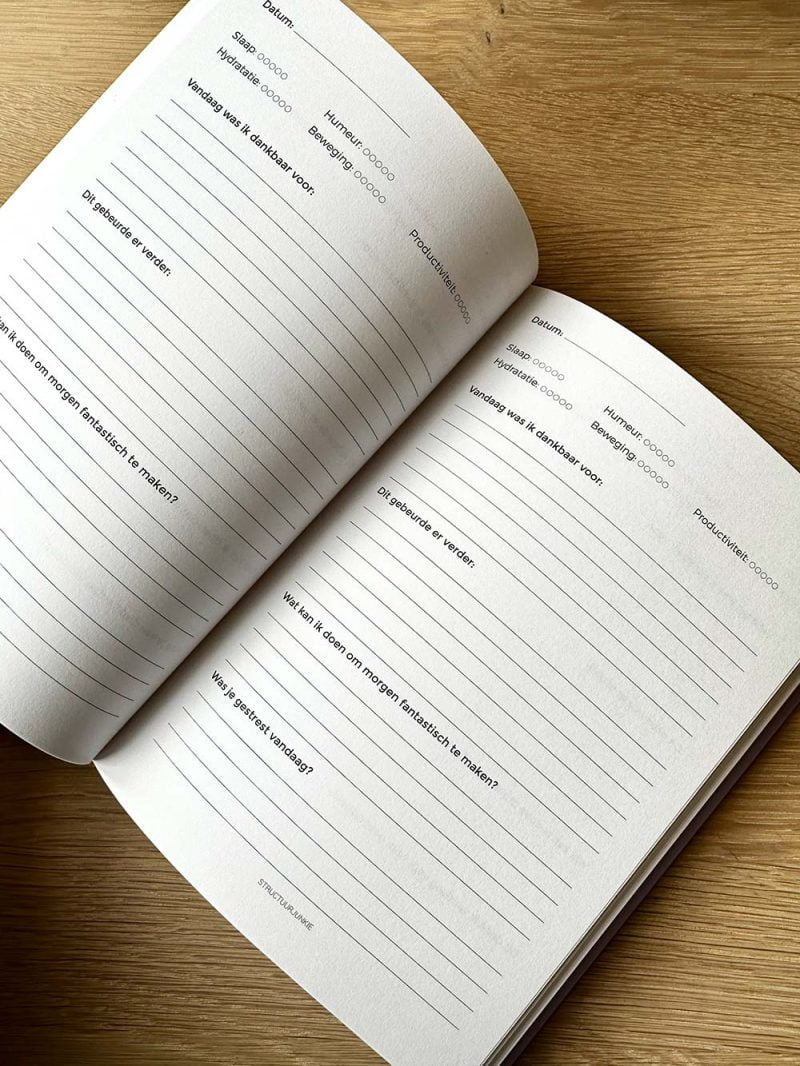 Datum:
Slaap: OOOOO
Humeur: OOOOO
Productiviteit: OOOOO
Hydratatie: OOOOO
Beweging: OOOOO
Vandaag was ik dankbaar voor:
Dit gebeurde er verder:
kan ik doen om morgen fantastisch te maken?
Datum:
Slaap: OOOOO
Humeur: OOOOO
Productiviteit: OOOOO
Hydratatie: OOOOO
Beweging: OOOOO
Vandaag was ik dankbaar voor:
Dit gebeurde er verder:
Wat kan ik doen om morgen fantastisch te maken?
Was je gestrest vandaag?
STRUCTUURJUNKIE